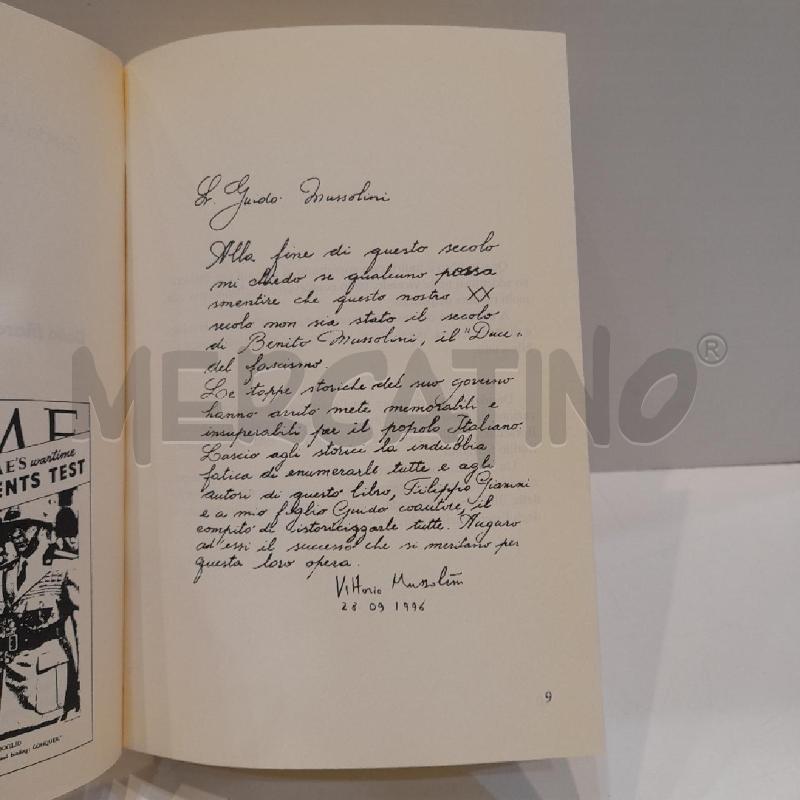 Guido Mussolini
Alla fine di questo secolo
mi chiedo se qualcuno possa
smentire che questo nostro XX
secolo non sia stato il secolo
di Benito Mussolini, il "Duce"
del fascismo.
Le tappe storiche del suo governo
hanno avuto mete memorabili e
insuperabili per il popolo Italiano.
Lascio agli storici la indubbia
fatica di enumerarle tutte e agli
autori di questo libro, Filippo Giannini
e a mio figlio Guido coautore, il
compito di istoricizzarle tutte. Auguro
ad essi il successo che si meritano per
questa loro opera.
Vittorio Mussolini
28 09 1996
9
MERCATINO®
ME
E'S wartime
ENTS TEST